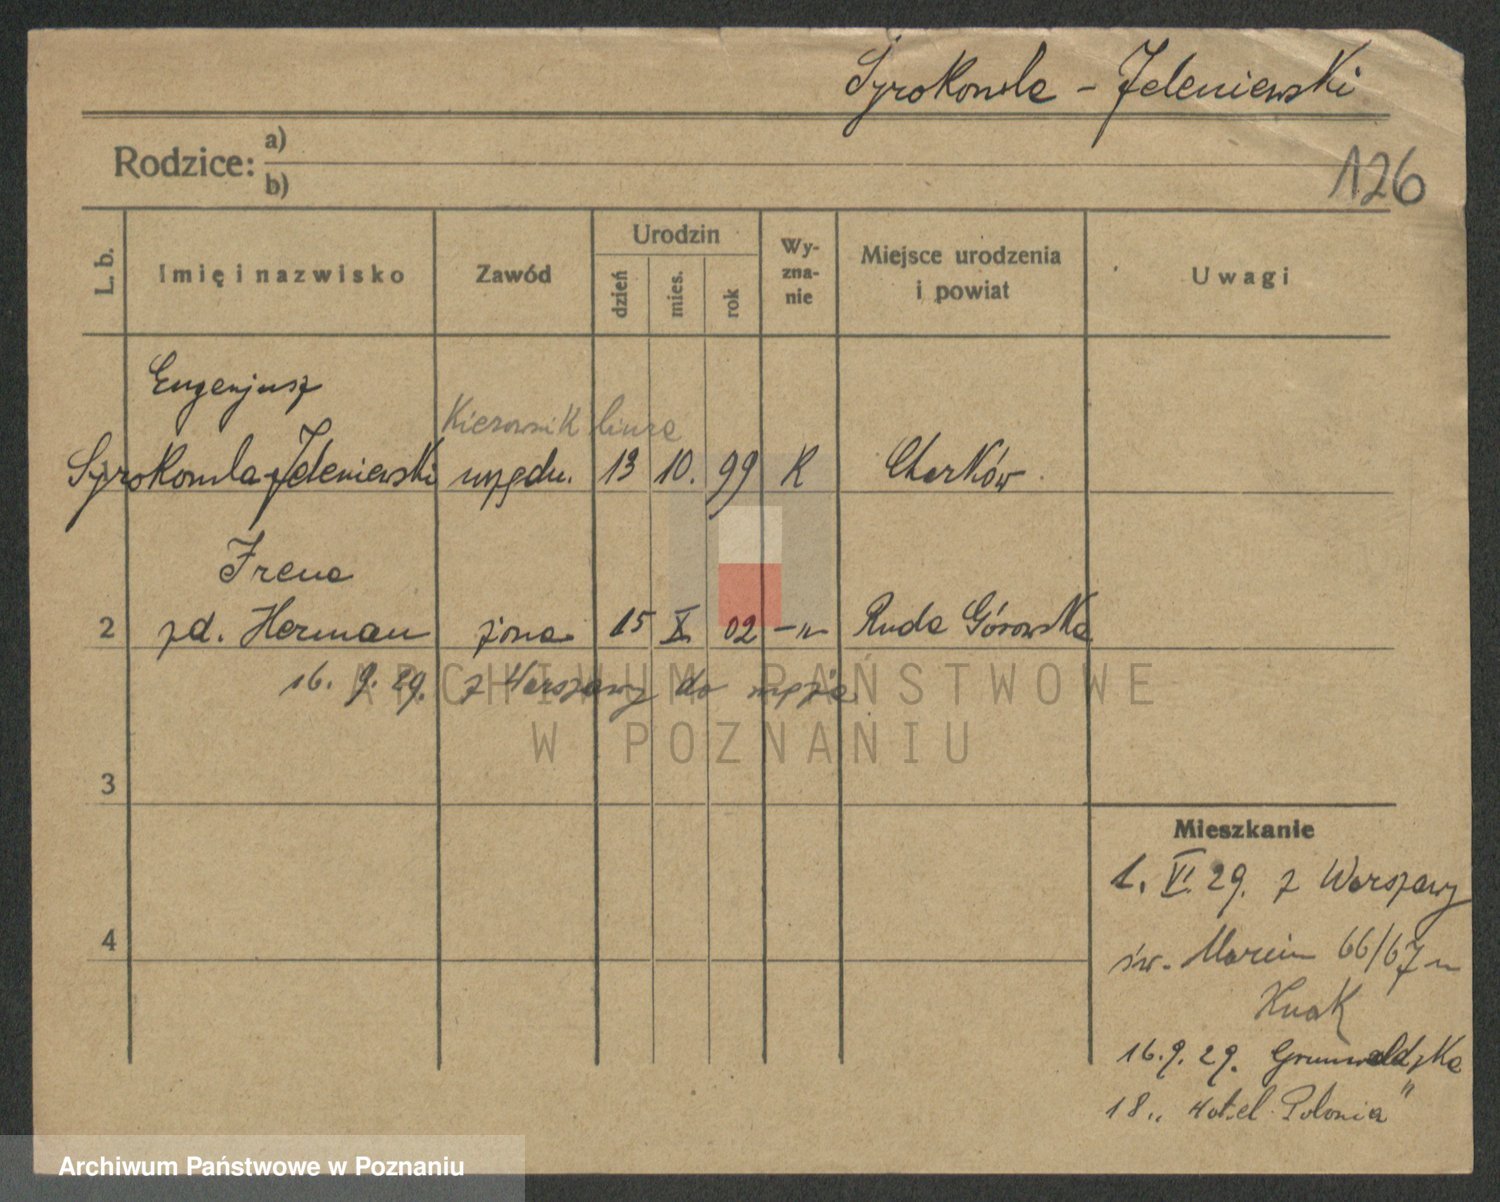 Syrokomla - Jeleniewski
Rodzice: a)
b)
126
L. b.
Imię i nazwisko
Zawód
Urodzin
dzień
mies.
rok
Wy-
zna-
nie
Miejsce urodzenia
i powiat
Uwagi
Eugenjusz
Kierownik biura
Syrokomla-Jeleniewski urzędn. 13 10. 99 K Charków
Irena
2 zd. Herman żona 15 X. 02 -"- Ruda Górowska
16. 9. 29. z Warszawy do męża
ARCHIWUM PAŃSTWOWE
W POZNANIU
3
4
Mieszkanie
1. VI. 29. z Warszawy
św. Marcin 66/67
16. 9. 29. Grunwaldzka
18 „ Hotel Polonia"
Archiwum Państwowe w Poznaniu